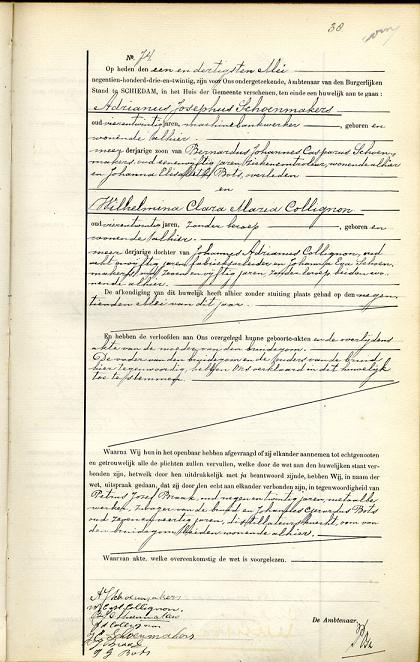 30
No. 74
Op heden den een en dertigsten Mei
negentien-honderd-drie-en-twintig, zijn voor Ons ondergeteekende, Ambtenaar van den Burgerlijken
Stand te SCHIEDAM, in het Huis der Gemeente verschenen, ten einde een huwelijk aan te gaan:
Adrianus Josephus Schoenmakers
oud vierentwintig jaren, machinebankwerker, geboren en
wonende alhier
meerderjarige zoon van Bernardus Johannes Casparus Schoen-
makers, oud eenenvijftig jaren, wonende alhier
en Johanna Elisabeth Bots, overleden
en
Wilhelmina Clara Maria Collignon
oud vierentwintig jaren, zonder beroep, geboren en
wonende alhier.
meerderjarige dochter van Johannes Adrianus Collignon, oud
vijftig jaren, en Johanna Eva Schoen-
makers, oud zevenenvijftig jaren, zonder beroep, beiden wo-
nende alhier.
De afkondiging van dit huwelijk heeft alhier zonder stuiting plaats gehad op den negen-
tienden Mei van dit jaar.
En hebben de verloofden aan Ons overgelegd hunne geboorte-akten en de overlijdens
akte van de moeder van den bruidegom.
De vader van den bruidegom en de ouders van de bruid,
hier tegenwoordig, hebben Ons verklaard in dit huwelijk
toe te stemmen.
Waarna Wij hun in het openbaar hebben afgevraagd of zij elkander aannemen tot echtgenooten
en getrouwelijk alle de plichten zullen vervullen, welke door de wet aan den huwelijken staat ver-
bonden zijn, hetwelk door hen uitdrukkelijk met ja beantwoord zijnde, hebben Wij, in naam der
wet, uitspraak gedaan, dat zij door den echt aan elkander verbonden zijn, in tegenwoordigheid van
Petrus Josef Braak, oud negenentwintig jaren, metaalbe-
werker, zwager van de bruid en Johannes Gerardus Bots
oud zevenenveertig jaren, distillateursknecht, oom van
den bruidegom, beiden wonende alhier.
Waarvan akte, welke overeenkomstig de wet is voorgelezen.
A J Schoenmakers
Collignon.
Schoenmakers
Collignon
Schoenmakers
Braak
J G Bots
De Ambtenaar,